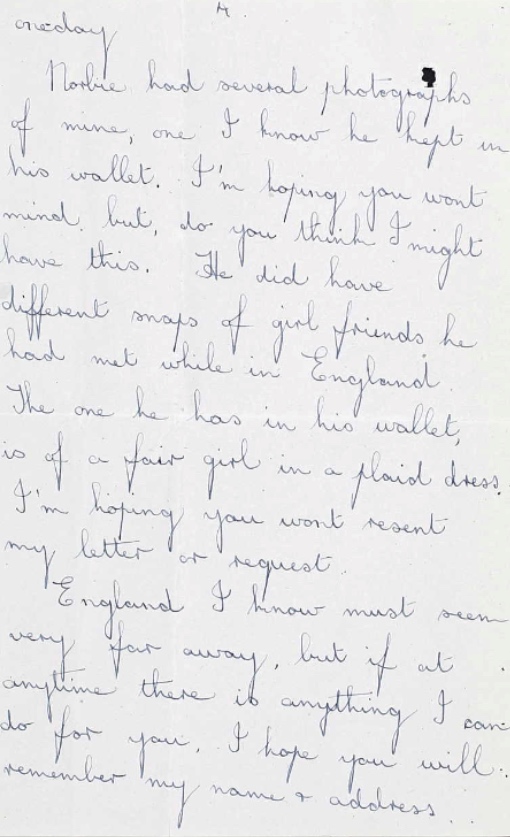 4.
oneday
Norbie had several photographs
of mine, one I know he kept in
his wallet. I'm hoping you wont
mind. but, do you think I might
have this. He did have
different snaps of girl friends he
had met while in England.
The one he has in his wallet,
is of a fair girl in a plaid dress.
I'm hoping you wont resent
my letter or request.
England I know must seem
very far away, but if at
anytime there is anything I can
do for you, I hope you will
remember my name & address...